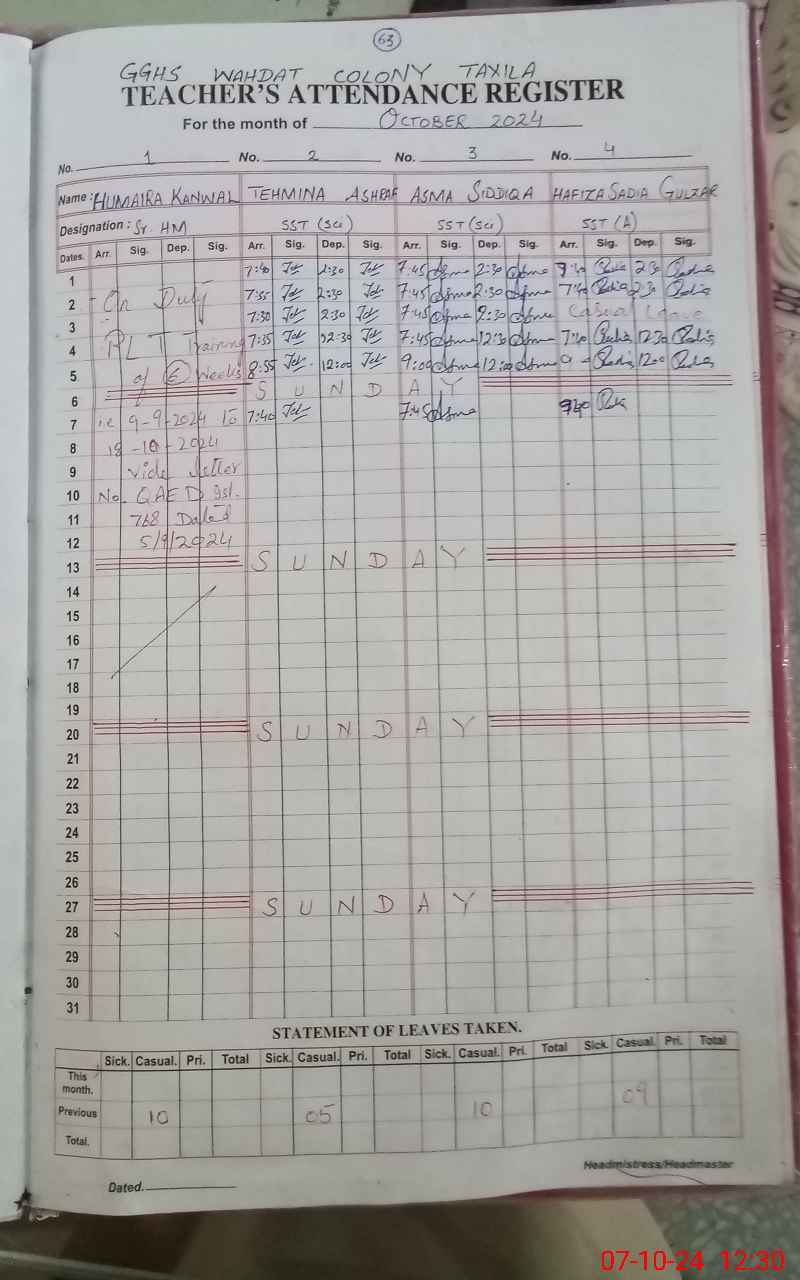 63
GGHS WAHDAT COLONY TAXILA
TEACHER'S ATTENDANCE REGISTER
For the month of OCTOBER 2024
No. 1 No. 2 No. 3 No. 4
Name: HUMAIRA KANWAL TEHMINA ASHRAF ASMA SIDDIQA HAFIZA SADIA GULZAR
Designation: Sr. HM SST (Sci) SST (Sci) SST (A)
Dates. Arr. Sig. Dep. Sig. Arr. Sig. Dep. Sig. Arr. Sig. Dep. Sig. Arr. Sig. Dep. Sig.
1 7:40 2:30 7:45 Asma 2:30 Asma 7:40 2:30
2 On Duty 7:35 2:30 7:45 Asma 2:30 Asma 7:40 2:30
3 7:30 2:30 7:45 Asma 2:30 Asma Casual Leave
4 PLT Training 7:35 12:30 7:45 Asma 12:30 Asma 7:40 12:30
5 of 6 Weeks 8:55 12:00 9:00 Asma 12:00 Asma 9 1200
6 SUNDAY
7 i.e 9-9-2024 to 7:40 7:45 Asma 7:40
8 18-10-2024
9 vide letter
10 No. QAED
11 768 Dated
12 5/9/2024
13 SUNDAY
14
15
16
17
18
19
20 SUNDAY
21
22
23
24
25
26
27 SUNDAY
28
29
30
31
STATEMENT OF LEAVES TAKEN.
Sick. Casual. Pri. Total Sick. Casual. Pri. Total Sick. Casual. Pri. Total Sick. Casual. Pri. Total
This month.
Previous 10 05 10 09
Total.
Headmistress/Headmaster
Dated.
07-10-24 12:30